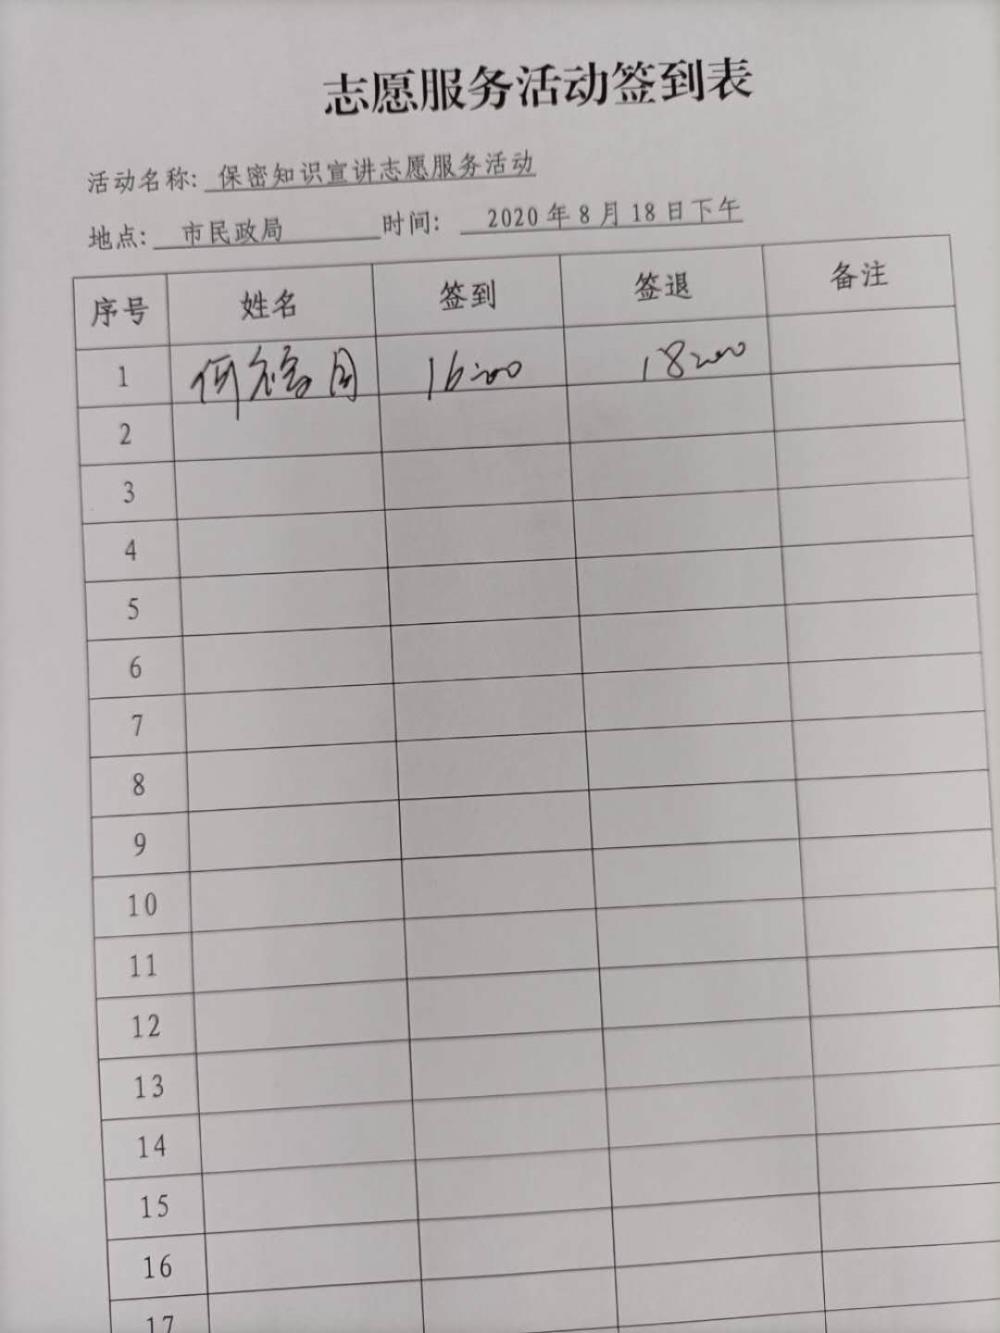 志愿服务活动签到表
活动名称: 保密知识宣讲志愿服务活动
地点: 市民政局 时间: 2020年8月18日下午
序号 姓名 签到 签退 备注
1 何 16:00 18:00
2
3
4
5
6
7
8
9
10
11
12
13
14
15
16
17